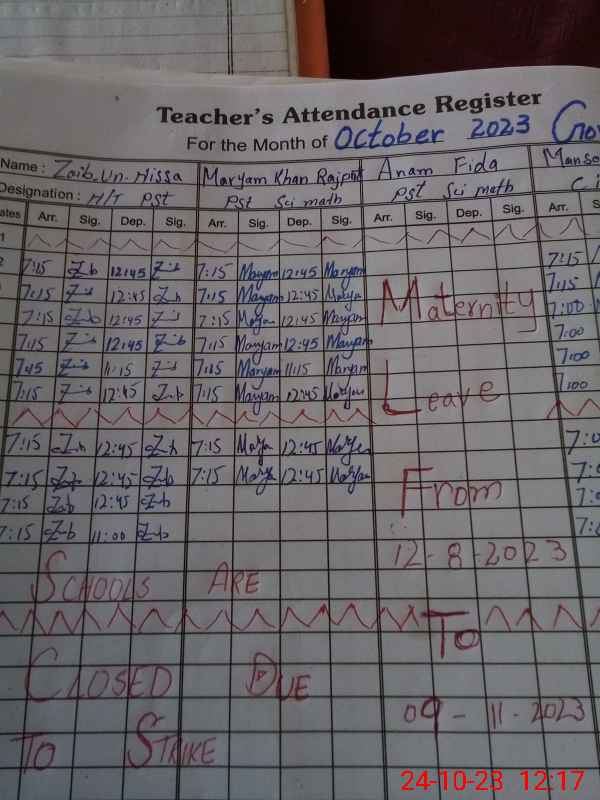 Teacher's Attendance Register
For the Month of October 2023
Name : Zaib.Un.Nissa Maryam Khan Rajput Anam Fida
Designation : H/T PST PST Sci math PST Sci math
ates Arr. Sig. Dep. Sig. Arr. Sig. Dep. Sig. Arr. Sig. Dep. Sig. Arr.
1
2 7:15 Z-b 12:45 Z-b 7:15 Maryam 12:45 Maryam 7:15
7:15 Z-b 12:45 Z-b 7:15 Maryam 12:45 Marya Maternity 7:15
7:15 Z-b 12:45 Z-b 7:15 Marya 12:45 Maryam 7:00
7:15 Z-b 12:45 Z-b 7:15 Maryam 12:45 Maryam 7:00
7:45 Z-b 11:15 Z-b 7:15 Maryam 11:15 Maryam 7:00
7:15 Z-b 12:45 Z-b 7:15 Maryam 12:45 Maryam Leave 7:00
7:15 Z-b 12:45 Z-b 7:15 Marya 12:45 Marya
7:15 Z-b 12:45 Z-b 7:15 Marya 12:45 Maryam
7:15 Z-b 12:45 Z-b From
7:15 Z-b 11:00 Z-b
12-8-2023
SCHOOLS ARE
To
CLOSED DUE
09-11-2023
TO STRIKE
24-10-23 12:17